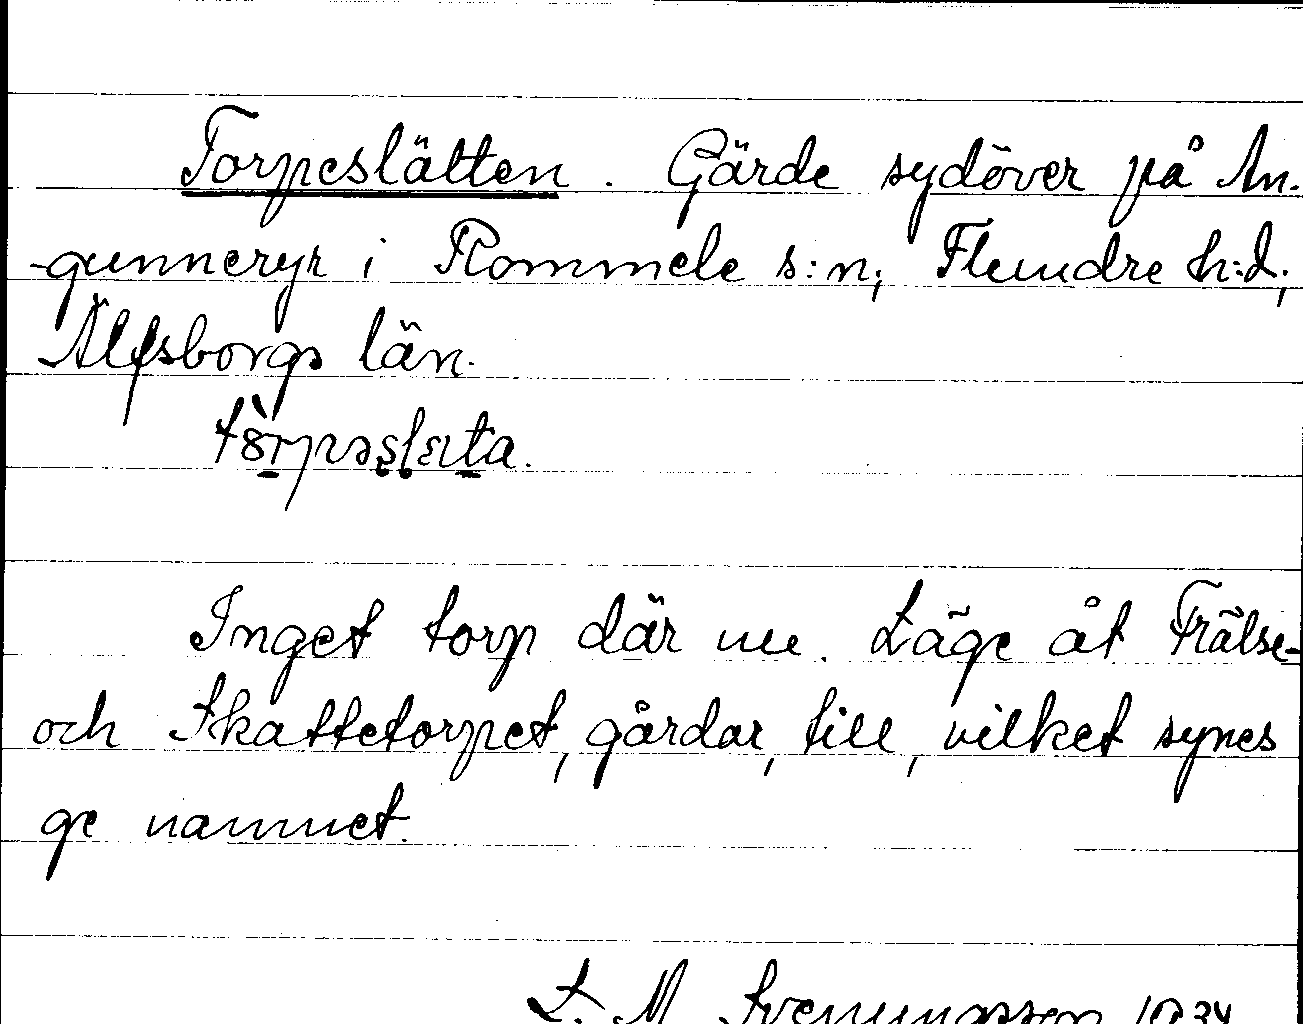 Torpeslätten. Gärde sydöver på An-
gunneryr i Rommele s:n, Flundre h:d,
Älfsborgs län.
Inget torp där nu. Läge åt Frälse-
och Skattetorpet, gårdar, till, vilket synes
ge namnet.
L. M. Svenungsson 1934